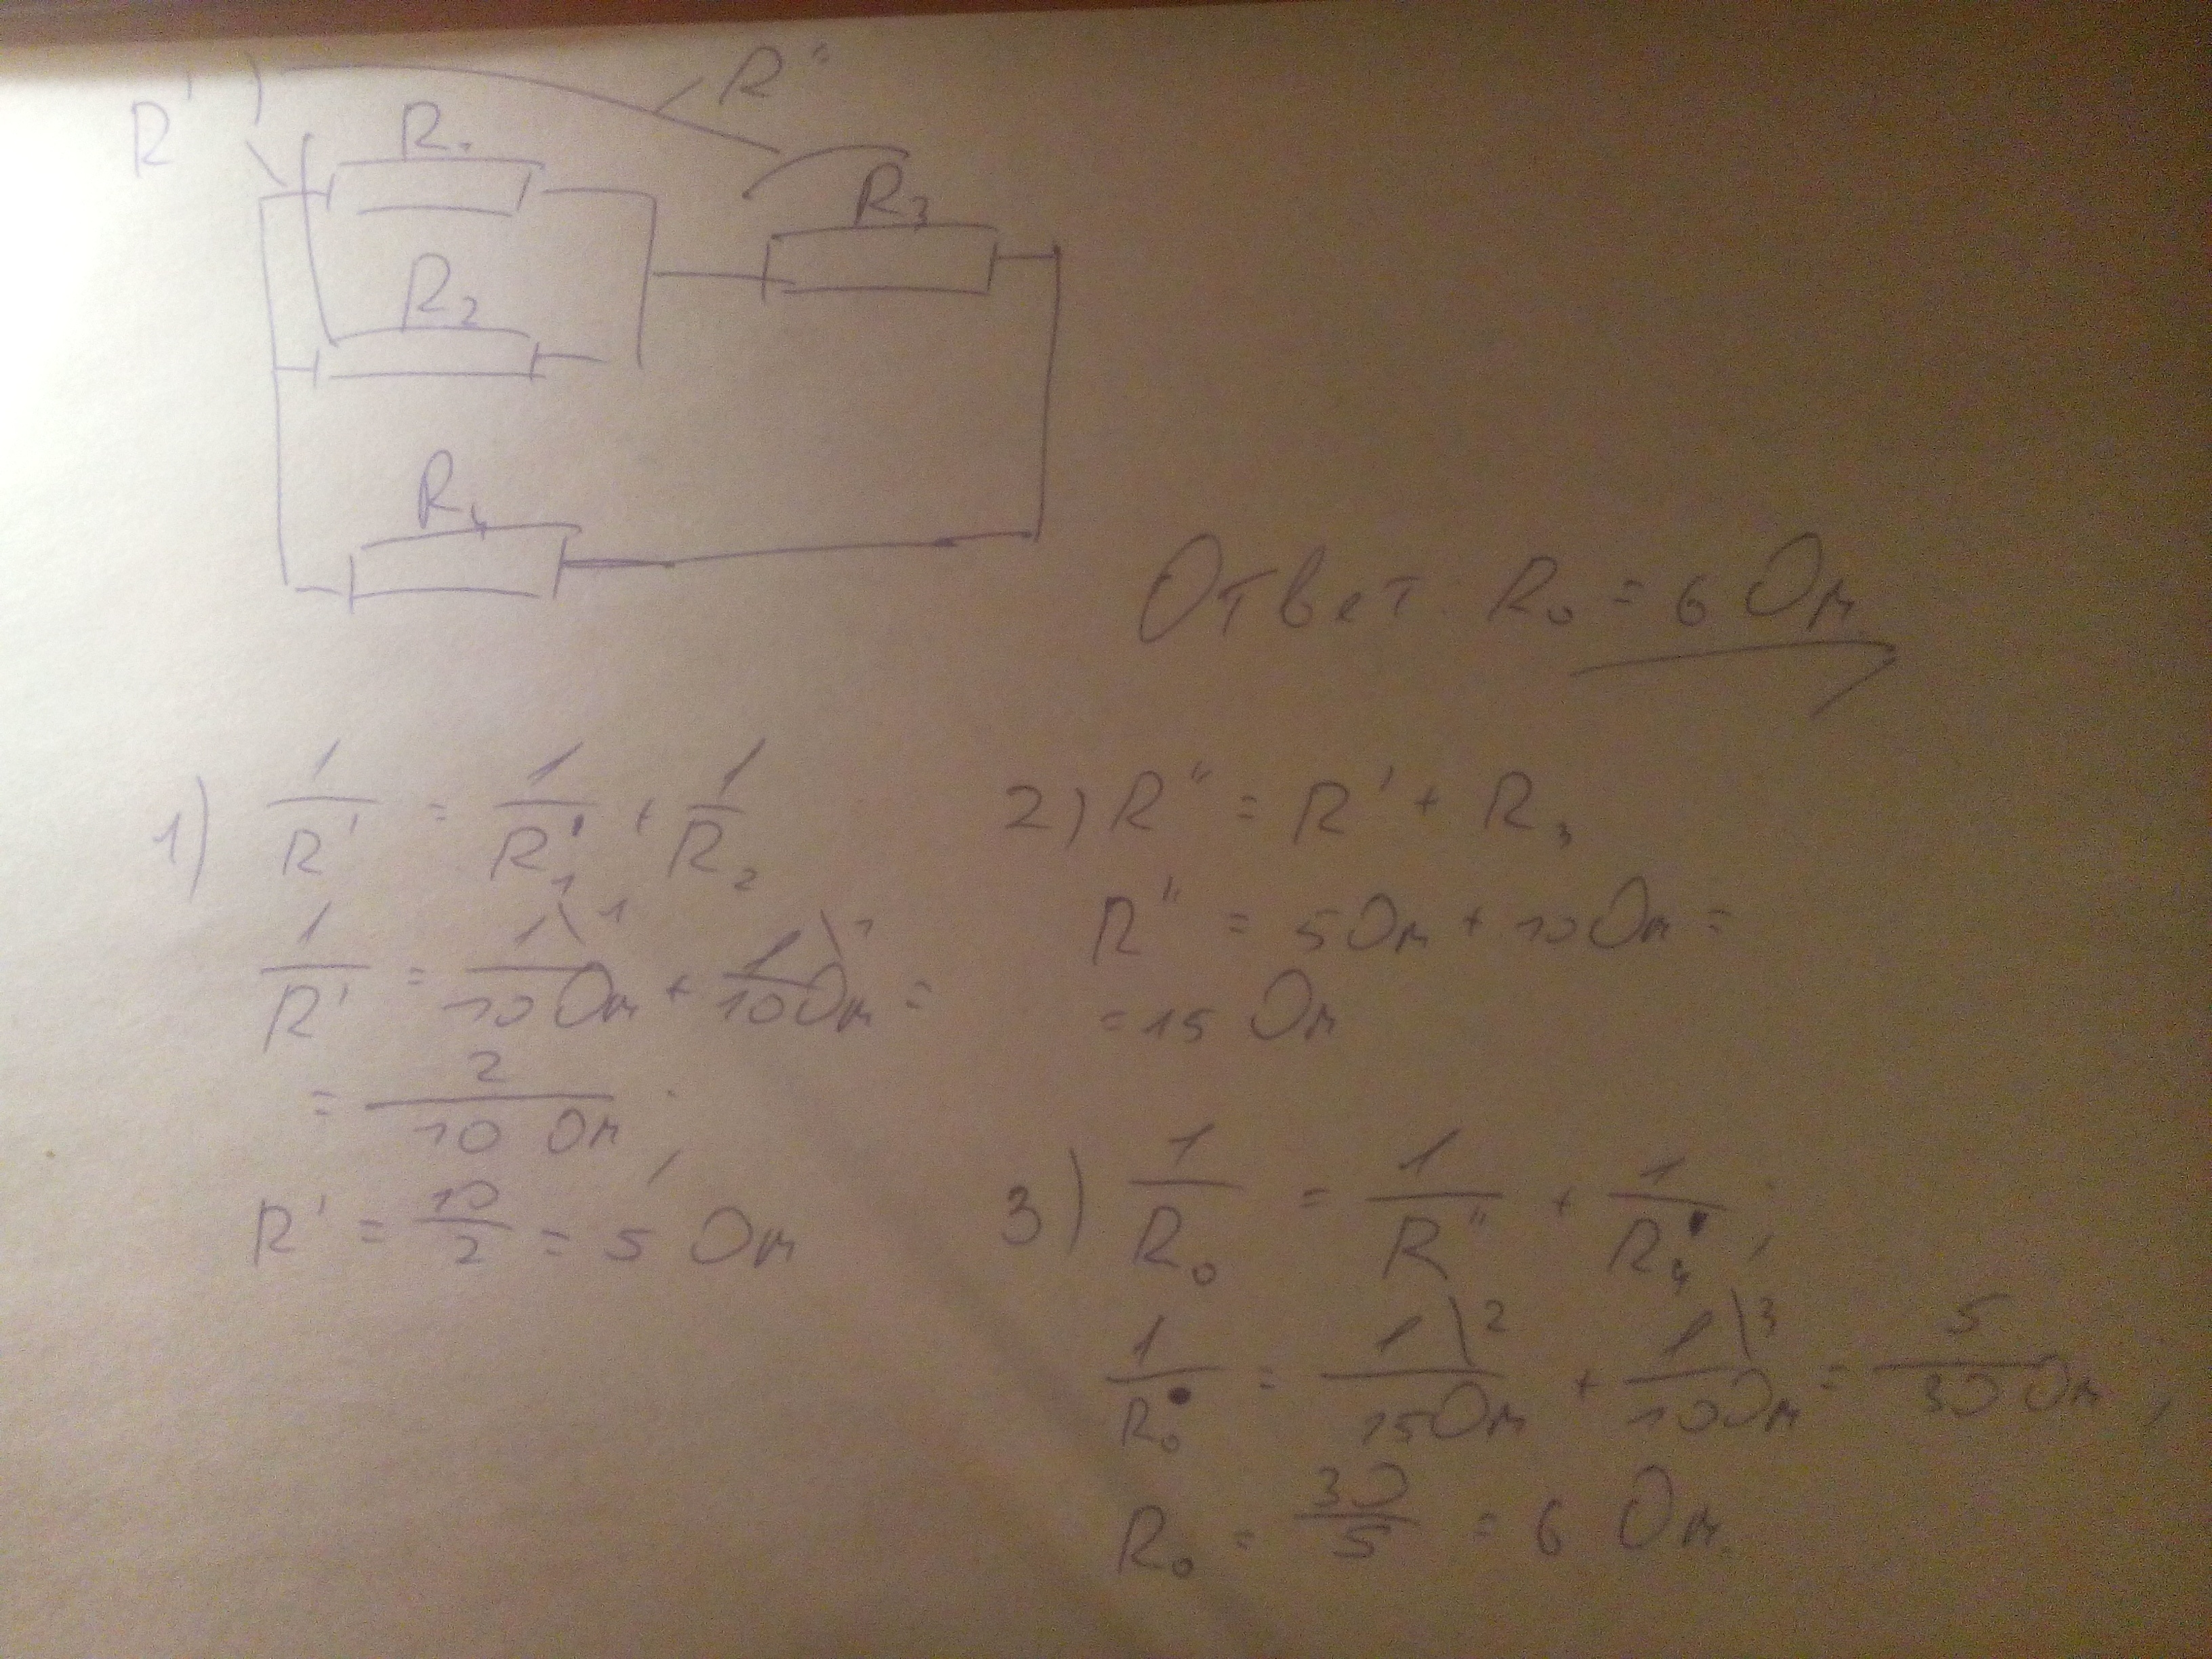 R' R"
R1
R3
R2
R4
Ответ: R0 = 6 Ом.
1) 1/R' = 1/R1 + 1/R2
1/R' = 1\1/10 Ом + 1\1/10 Ом =
= 2/10 Ом ;
R' = 10/2 = 5 Ом
2) R" = R' + R3
R" = 5 Ом + 10 Ом =
= 15 Ом
3) 1/R0 = 1/R" + 1/R4 ;
1/R0 = 1\2/15 Ом + 1\3/10 Ом = 5/30 Ом ;
R0 = 30/5 = 6 Ом.